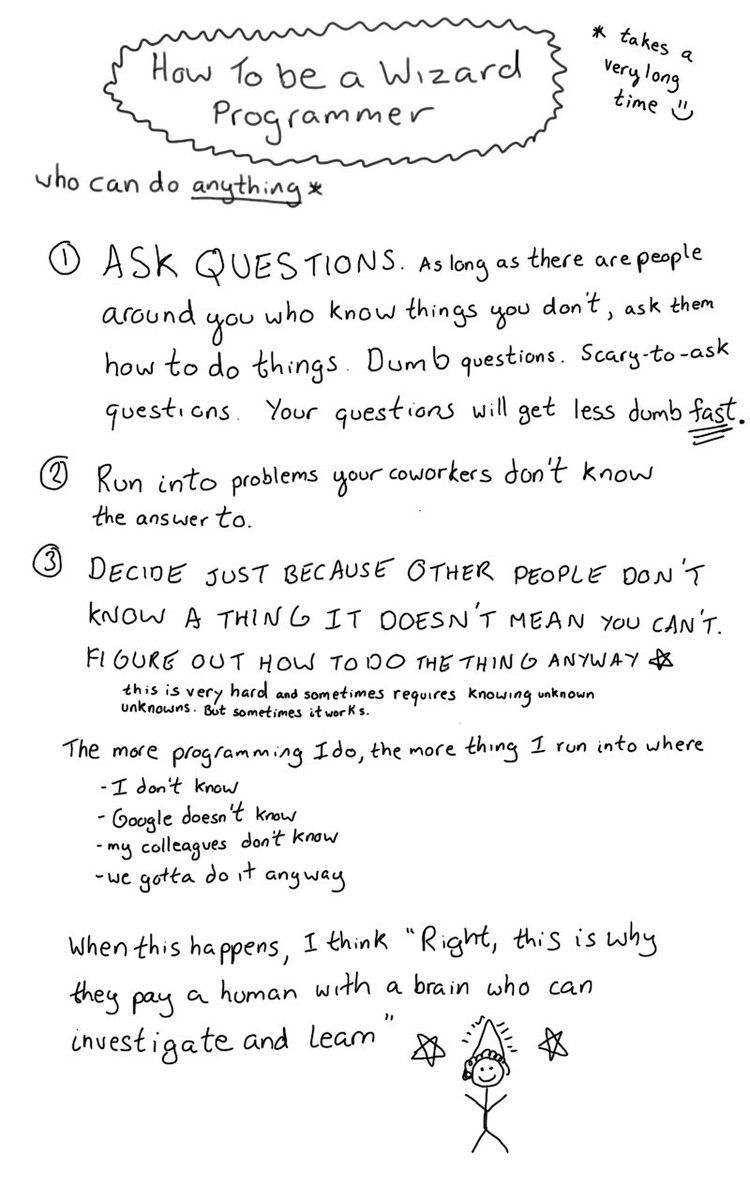 How To be a Wizard
Programmer
* takes a
very long
time
who can do anything*
① ASK QUESTIONS. As long as there are people
around you who know things you don't, ask them
how to do things. Dumb questions. Scary-to-ask
questions. Your questions will get less dumb fast.
② Run into problems your coworkers don't know
the answer to.
③ DECIDE JUST BECAUSE OTHER PEOPLE DON'T
KNOW A THING IT DOESN'T MEAN YOU CAN'T.
FIGURE OUT HOW TO DO THE THING ANYWAY ☆
this is very hard and sometimes requires knowing unknown
unknowns. But sometimes it works.
The more programming I do, the more thing I run into where
- I don't know
- Google doesn't know
- my colleagues don't know
- we gotta do it anyway
When this happens, I think "Right, this is why
they pay a human with a brain who can
investigate and learn"